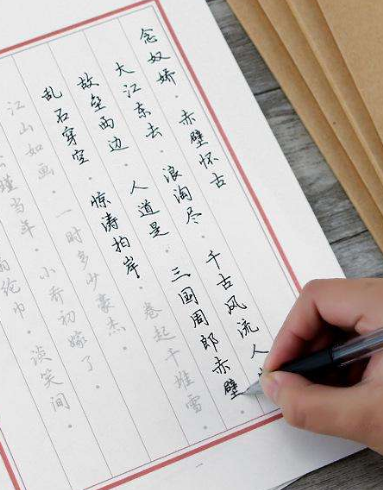 念奴娇·赤壁怀古
大江东去。浪淘尽。千古风流人
故垒西边。人道是。三国周郎赤壁。
乱石穿空。惊涛拍岸。卷起千堆雪。
江山如画。一时多少豪杰。
瑾当年。小乔初嫁了。
纶巾。谈笑间。